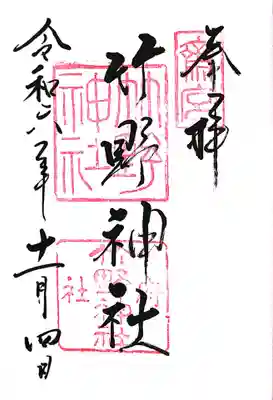 奉拝
齋宮
竹野神社
竹野神社
竹野神社
令和六年十一月四日